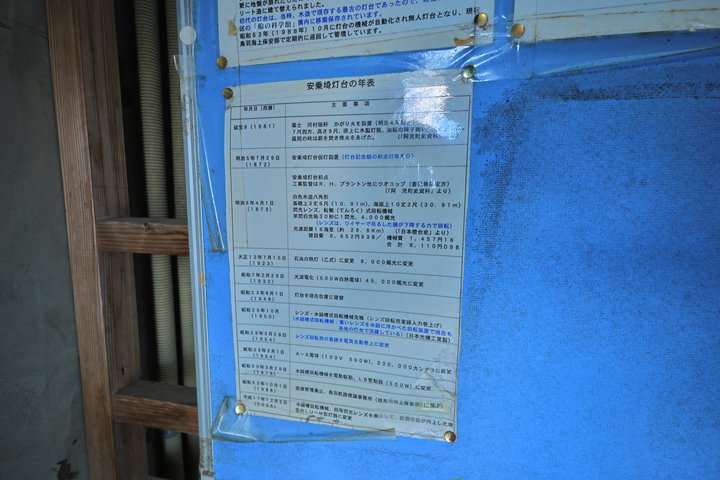 更に地盤が
リート造に建て替えられました。
初代の灯台は、当時、木造で現存する最古の灯台であったので、現在
区の「船の科学館」構内に移築保存されています。
昭和63年(1988年)10月に灯台の機械が自動化され無人灯台となり、現在
鳥羽海上保安部で定期的に巡回して管理しています。
安乗埼灯台の年表
年月日(西暦) 主要事項
延宝9(1681) 幕士 河村瑞軒 かがり火を設置(明治4年
7尺四方、高さ9尺、塔上に木製灯籠、油紙の障子
風雨の時は薪を焚き烽火をあげた。(「阿児町史資料
明治5年7月29日(1872) 安乗埼灯台仮灯設置(灯台記念館の初点灯年月日)
明治6年4月1日(1873) 安乗埼灯台初点
工事監督はR.H.ブラントン他にウオコップ
(「阿児町史資料」より)
白色木造八角形
基礎上3丈6尺(10.91m)、海面上10丈2尺(30.91m)
閃光レンズ、転輾(てんろく)式回転機械
単閃白光毎30秒に1閃光、4,000燭光
(レンズは、ワイヤーで吊るした錘が下降する力で回転)
光達距離16海里(約29.6Km)(「日本燈台史」より)
建設費 6,652円938/ 機械費 1,457円16
合計 8,110円098
大正12年7月15日(1923) 石油白熱灯(乙式)に変更 6,000燭光に変更
昭和7年2月29日(1932) 光源電化(500W白熱電球)45,000燭光に変更
昭和23年8月1日(1948) 灯台を現在位置に建替
昭和25年10月(1950) レンズ・水銀槽式回転機械交換(レンズ回転用重錘人力巻上げ)
(水銀槽式回転機械:重いレンズを水銀に浮かべた回転装置で現在も
各地の灯台で活躍している)(日本光機工業製)
昭和29年3月28日(1954) レンズ回転用の重錘を電気自動巻上に変更
昭和39年2月1日(1964) A-5電球(100V 500W)、330,000カンデラに変更
昭和50年3月29日(1975) 水銀槽回転機械を電動駆動、LB管制器(500W)に変更
昭和63年10月1日(1988) 巡視管理廃止、鳥羽航路標識事務所(現鳥羽海上保安部)に集約
平成17年12月2日 水銀槽回転機械、四等閃光レンズを廃止して、耐震性能が向上した
UーM型灯器に変更